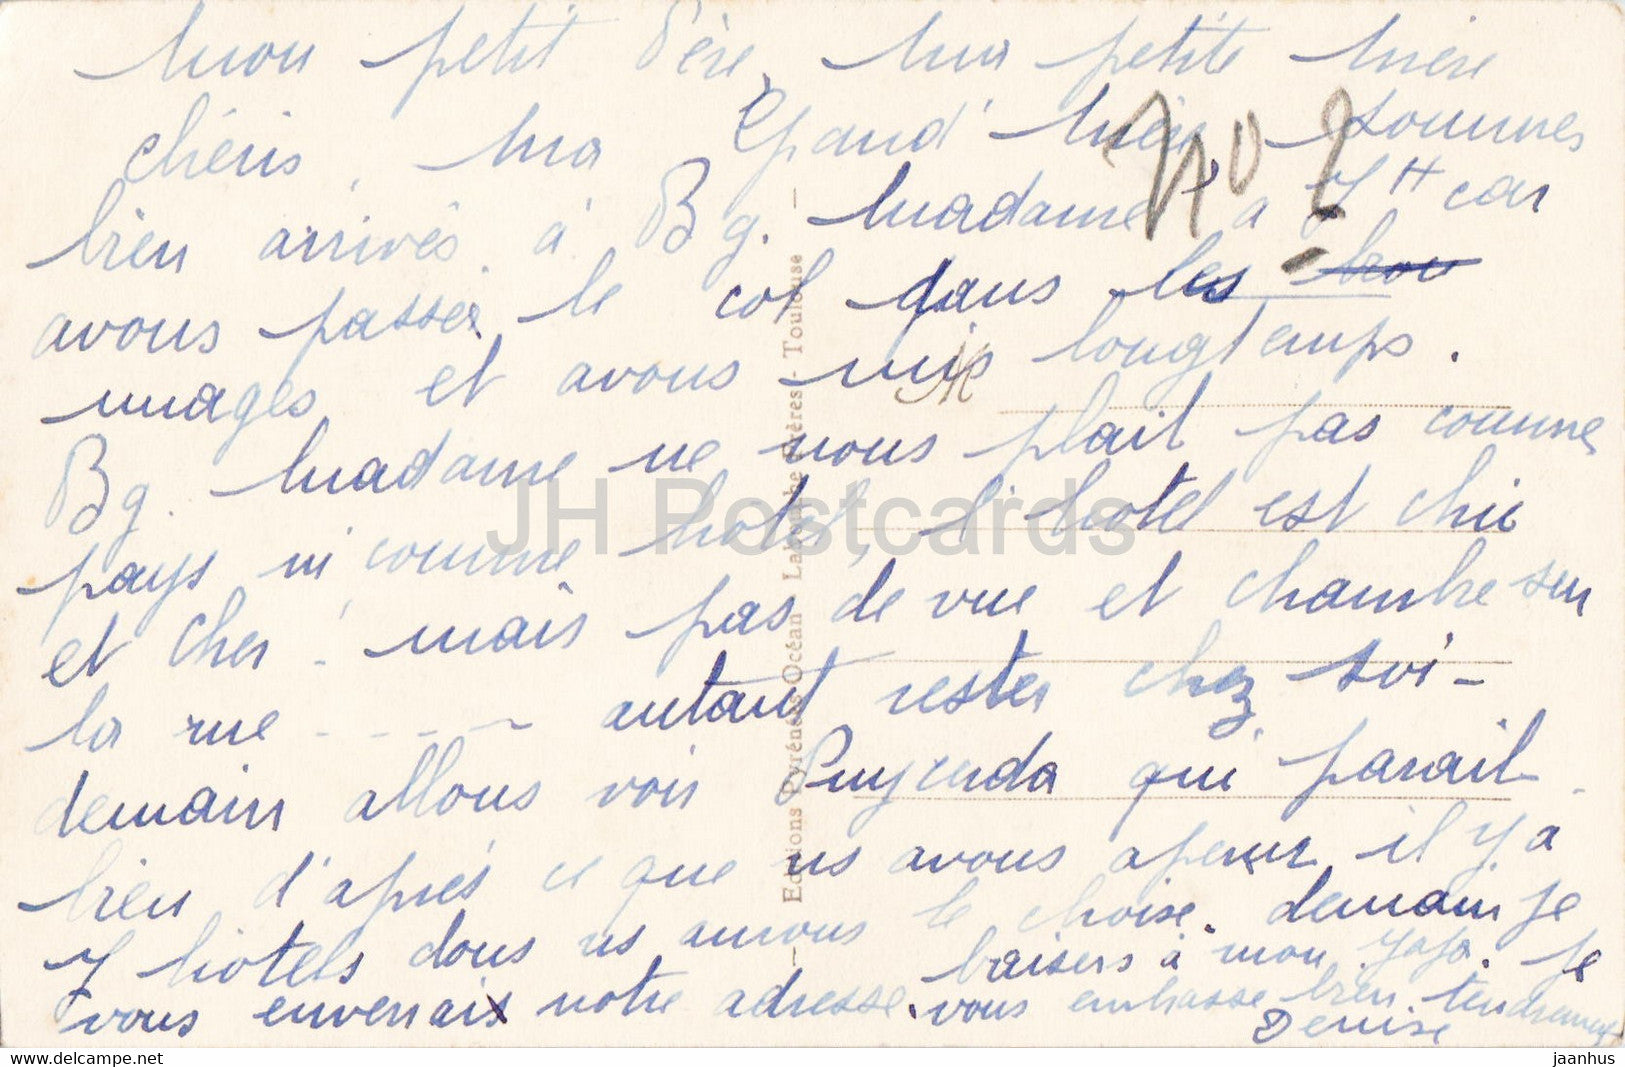 mon petit Père, ma petite mère
chéris, ma Grand'mère sommes
bien arrivés à Bg. madame à 7H car
avons passer le col dans les brou
nuages et avons mis longtemps.
Bg. madame ne nous plait pas comme
pays ni comme hotel, l'hotel est chic
et cher! mais pas de vue et chambre sur
la rue - - - - autant rester chez soi -
demain allons voir Puycerda qui parait
bien d'après ce que ns avons aperçu, il y a
7 hôtels dons ns aurons le choise. demain je
vous enverrais notre adresse. baisers à mon Jojo. Je
vous embrasse bien tendrement
Denise
No 2
Editions Pyrénées-Océan Labouche Frères - Toulouse
JH Postcards
HipPostcard.com
jaanhus